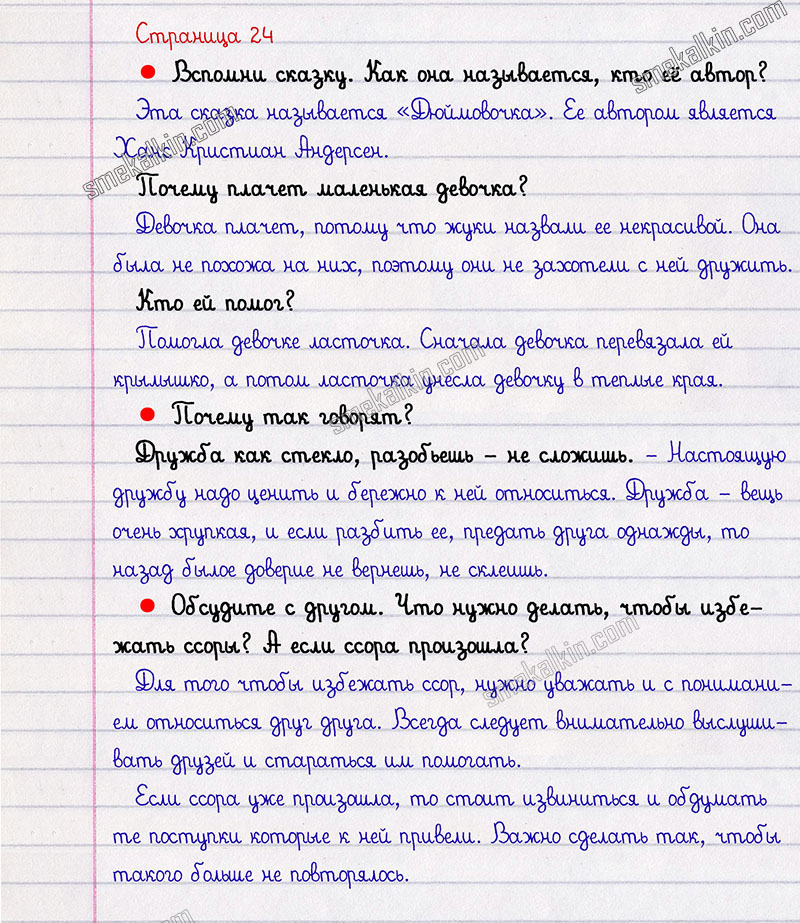 Страница 24
• Вспомни сказку. Как она называется, кто её автор?
Эта сказка называется «Дюймовочка». Ее автором является
Ханс Кристиан Андерсен.
Почему плачет маленькая девочка?
Девочка плачет, потому что жуки назвали ее некрасивой. Она
была не похожа на них, поэтому они не захотели с ней дружить.
Кто ей помог?
Помогла девочке ласточка. Сначала девочка перевязала ей
крылышко, а потом ласточка унесла девочку в теплые края.
• Почему так говорят?
Дружба как стекло, разобьешь – не сложишь. – Настоящую
дружбу надо ценить и бережно к ней относиться. Дружба – вещь
очень хрупкая, и если разбить ее, предать друга однажды, то
назад былое доверие не вернешь, не склеишь.
• Обсудите с другом. Что нужно делать, чтобы избе-
жать ссоры? А если ссора произошла?
Для того чтобы избежать ссор, нужно уважать и с понимани-
ем относиться друг друга. Всегда следует внимательно выслуши-
вать друзей и стараться им помогать.
Если ссора уже произошла, то стоит извиниться и обдумать
те поступки которые к ней привели. Важно сделать так, чтобы
такого больше не повторялось.
smekalkin.com
smekalkin.com
smekalkin.com
smekalkin.com